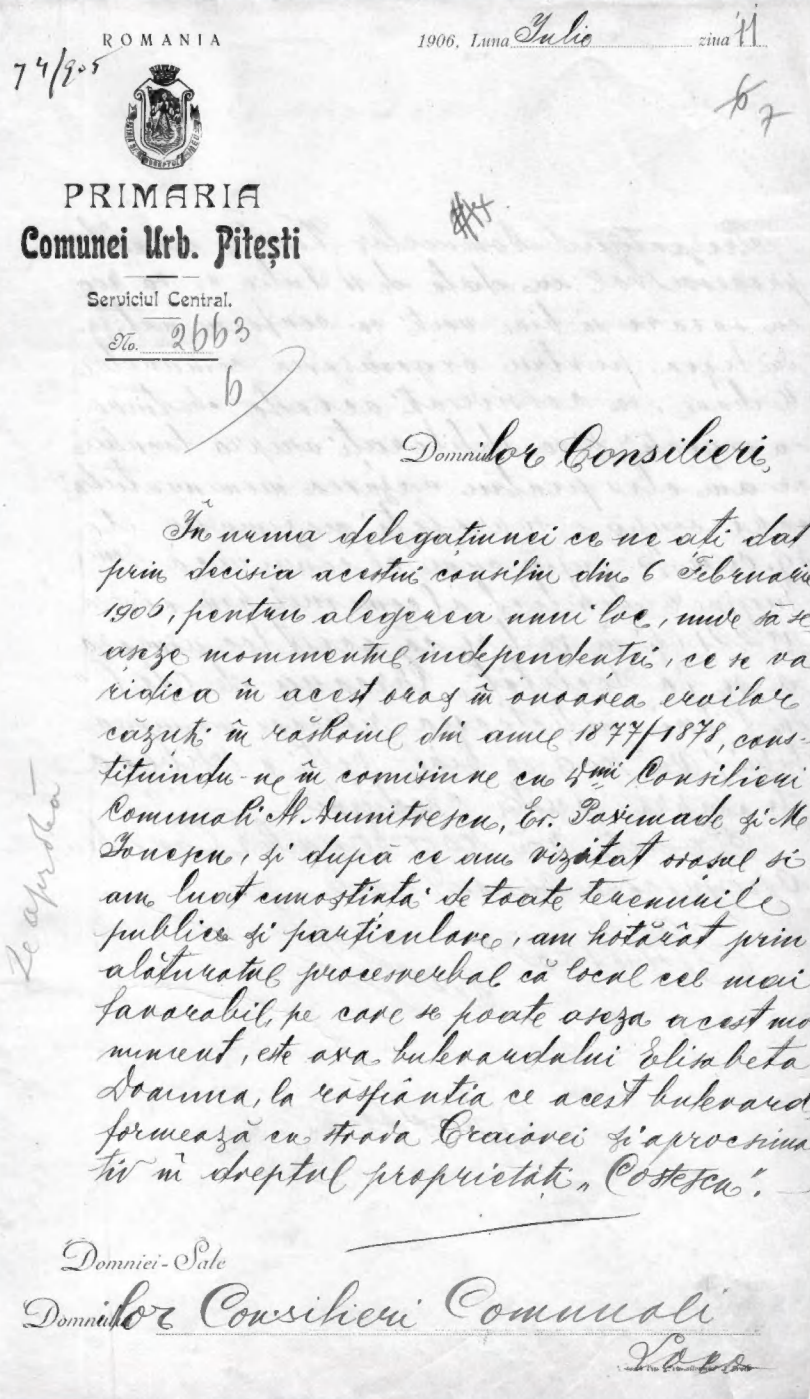 ROMANIA
1906, Luna Iulio ziua 11
74/905
6 7
PRIMARIA
Comunei Urb. Pitești
Serviciul Central.
No. 2663
6
Domnilor Consilieri,
În urma delegațiunei ce ne ați dat
prin decisia acestui consiliu din 6 Februarie
1906, pentru alegerea unui loc, unde să se
aseze monumentul independenței, ce se va
ridica în acest oraș în onoarea eroilor
căzuți în răsboiul din anul 1877/1878, cons-
tituindu-ne în comisiune cu Dnii Consilieri
Comunali Al. Dumitrescu, Er. Parimade și M
Ionescu, și după ce am vizitat orasul si
am luat cunoștință de toate terenurile
publice și particulare, am hotărât prin
alăturatul procesverbal că locul cel mai
favorabil, pe care se poate aseza acest mo
nument, este axa bulevardului Elisabeta
Doamna, la răspântia ce acest bulevard
formează cu strada Craiovei și aprocsima
tiv în dreptul proprietăți „Costescu”.
Se aprobă
Domniei-Sale
Domnilor Consilieri Comunali
Loco